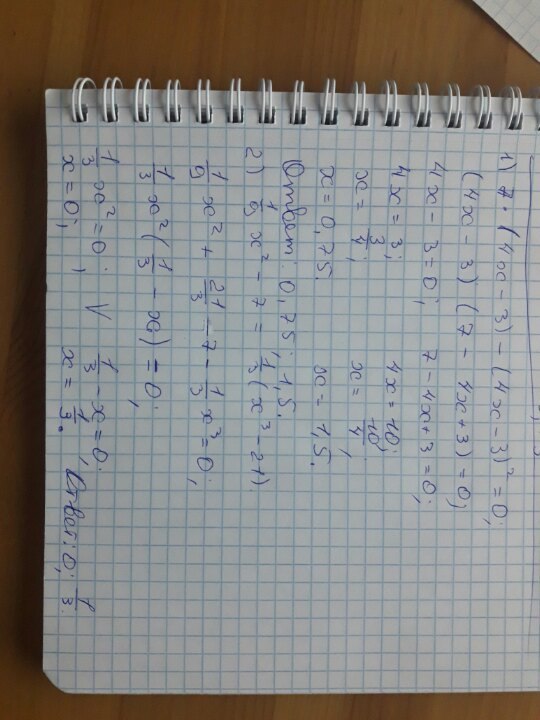 1) 7·(4x-3)-(4x-3)²=0;
(4x-3)(7-4x+3)=0;
4x-3=0; 7-4x+3=0;
4x=3; 4x=10;
x=3/4; x=10/4;
x=0,75. x=1,5.
Ответ: 0,75; 1,5.
2) 1/9x²-7=1/3(x³-21)
1/9x²+21/3-7-1/3x³=0;
1/3x²(1/3-x)=0;
1/3x²=0; V 1/3-x=0;
x=0; x=1/3. Ответ: 0; 1/3.